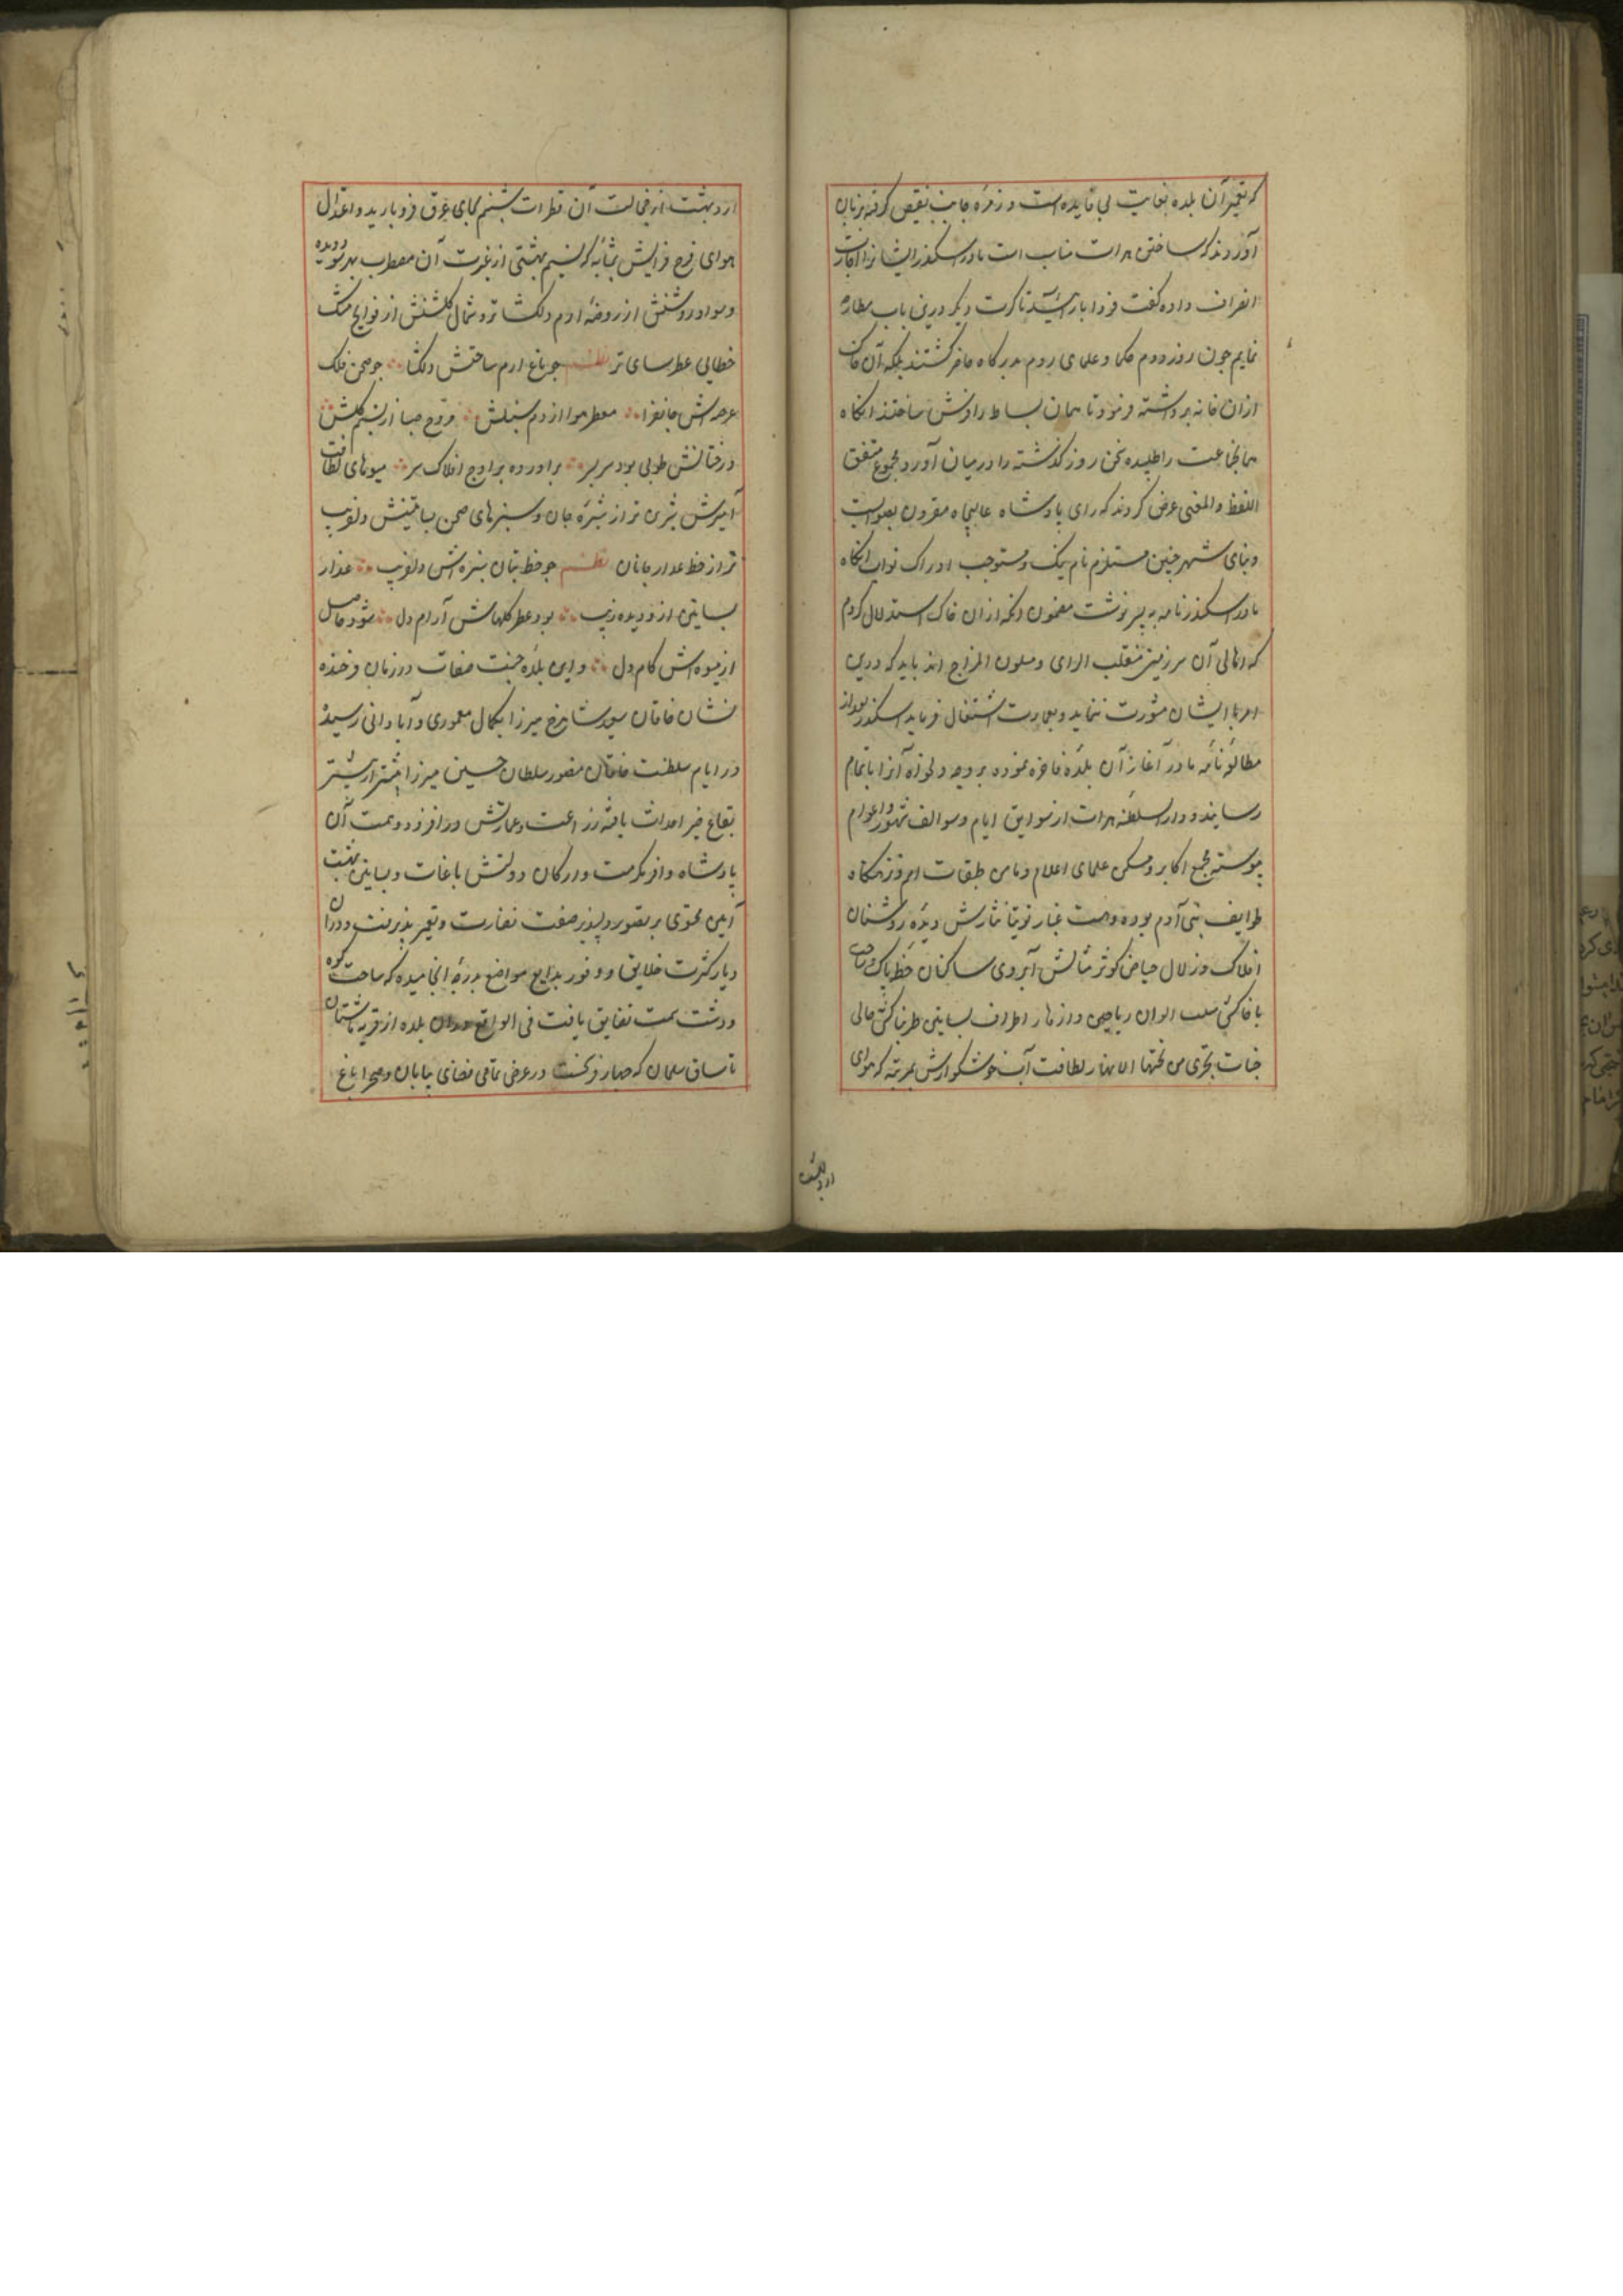 که تعمیر آن بلده بغایت بی فایده است و زمرهٔ جانب نقیض گرفته بزبان
آوردند که ساختن هرات مناسب است مادر اسکندر ایشانرا اجازت
انصراف داده گفت فردا باز آئید تا کرت دیگر درین باب مطارحه
نمایم چون روز دوم حکما و علمای روم بدرگاه حاضر گشتند ملکه آن خاک
ازان خانه برداشته فرمود تا همان بساط را فرش ساختند انگاه
همانجماعت را طلبیده سخن روز گذشته را در میان آورد مجموع متفق
اللفظ والمعنی عرض کردند که رای پادشاه عالیجاه مقرون بصوابست
و بنای شهر چنین مستلزم نام نیک و مستوجب ادراک ثواب انگاه
مادر اسکندر نامه به پسر نوشت مضمون انکه ازان خاک استدلال کردم
که اهالی آن سرزمین منقلب الرای و متلون المزاج اند باید که درین
امر با ایشان مشورت ننماید و بعمارت اشتغال فرماید اسکندر بعد از
مطالعهٔ نامهٔ مادر آغاز آن بلدهٔ فاخره نموده بر وجه دلخواه آنرا باتمام
رسانید و دار السلطنه هرات از سوابق ایام و سوالف شهور و اعوام
پیوسته مجمع اکابر و مسکن علمای اعلام و مامن طبقات امم و نزهتگاه
طوایف بنی آدم بوده و هست غبار توتیا نثارش دیدهٔ روشنان
افلاک و زلال حیاض کوثر مثالش آبروی ساکنان خطهٔ پاک
با خاکش الوان ریاحین و ازهار اطراف بساتین طربناکش حاکی
جنات تجری من تحتها الانهار لطافت آب خوشگوارش بمرتبه که هوای
اردیبهشت
اردیبهشت از خجالت آن قطرات شبنم بجای عرق فرو بارید و اعتدال
هوای فرح فزایش بمثابه که نسیم بهشتی از غیرت آن مضطرب بهر سو دویده
و سواد روشنش از روضهٔ ارم دلگشا تر و شمال گلشنش از فوایح مشک
خطایی عطرسای تر نظم چو باغ ارم ساحتش دلگشا چو صحن فلک
عرصه اش جانفزا معطر هوا از دم سنبلش مروح صبا از نسیم گلش
درختانش طوبی بود سر بسر براورده بر اوج افلاک سر میوهای لطافت
آمیزش شیرین تر از ثمرهٔ جان و سبزهای صحن بساتینش دلفریب
تر از خط عذار جانان نظم چو خط بتان سبزه اش دلفریب عذار
بساتین ازو دیده زیب بود عطر گلهاش آرام دل شود حاصل
از میوه اش کام دل و این بلدهٔ جنت صفات در زمان فرخنده
نشان خاقان سعید شاهرخ میرزا بکمال معموری و آبادانی رسید
در ایام سلطنت خاقان منصور سلطان حسین میرزا بیشتر از پیشتر
بقاع خیر احداث یافته زراعت و عمارتش روز افزود و بیمن همت آن
پادشاه وافر مکرمت و ارکان دولتش باغات و بساتین بهشت
آیین محتوی بر قصور دلپذیر صفت نضارت و تعمیر پذیرفت و دران
دیار کثرت خلایق و وفور بدایع مواضع بدرجهٔ انجامیده که ساحت کوه
و دشت سمت تضایق یافت فی الواقع دران بلده از قریه تا شتان
تا ساق سلمان که چهار فرسخست در عرض تمامی فضای بیابان و صحرا باغ